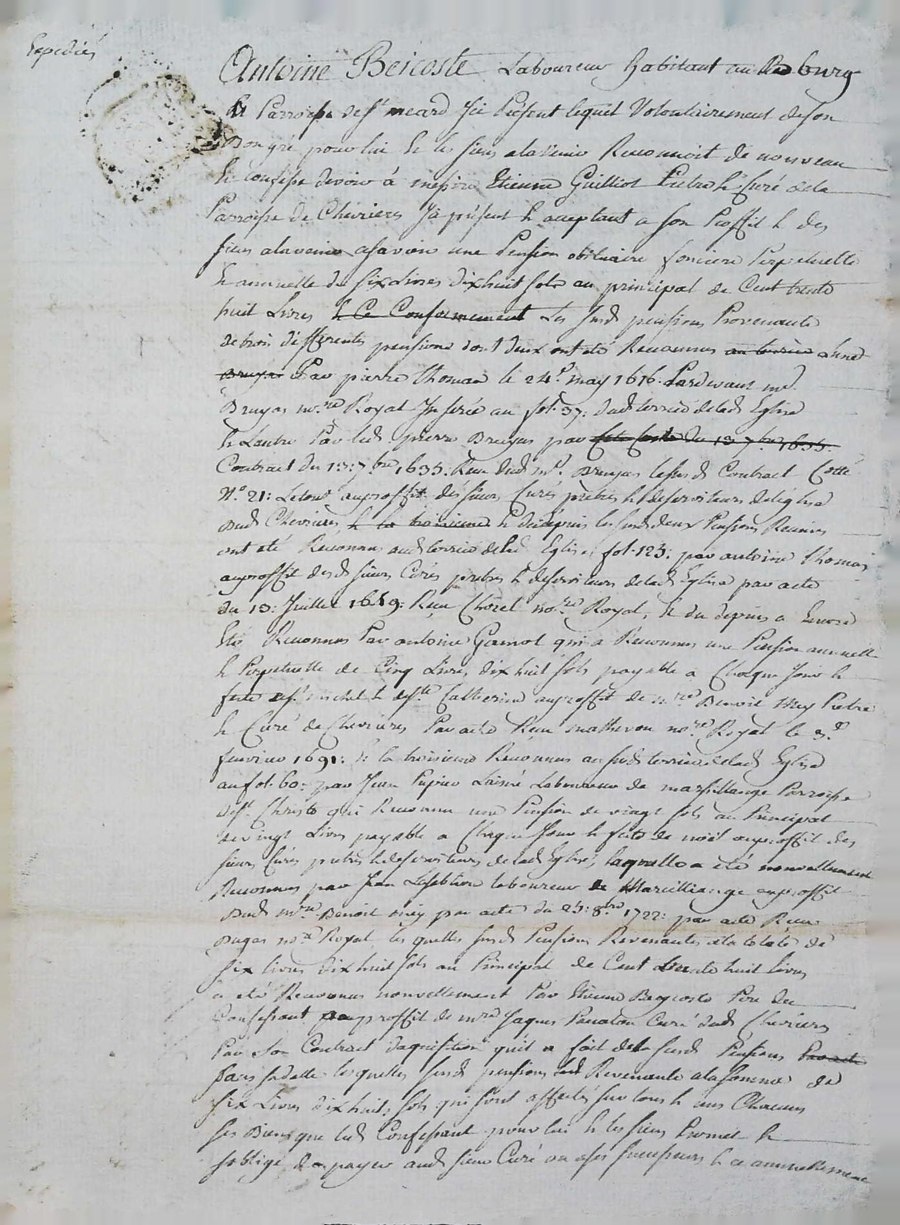 Expediés
Antoine Bercoste Laboureur habitant au bourg
Et Parroisse de st meard Icy Présent lequel Volontairement de son
Bon gré pour lui Et les siens alavenir Reconnoit de nouveau
Et confesse devoir à messire Etienne Guilliot Prêtre Et Curé de la
Parroisse de Chevrieres Jcy présent Et aceptant a son Proffit Et des
siens alavenir asavoir une Pension obituaire fonciere Perpetuelle
Et annuelle de six Livres dixhuit sols au principal de Cent trente
huit Livres Et Ce Conformement Les susd pensions Provenante
de trois differents pensions dont deux ont été Reconnues au terrier
Par pierre thomas le 24e may 1616 Pardevant me
Bruyas nore Royal Inserée au fol. 37: dud terrier delad Eglise
Et Lautre Par led pierre Bruyas par du 13: 7bre 1635.
Contract du 13: 7bre 1635: Reçu dud me Bruyas lesusd Contract Cotté
No 21: Le tout auproffit des sieurs Curés prêtres Et deserviteurs deleglise
dud Chevrieres Et la troisieme Et Dedepuis les susd deux Pensions Reunies
ont été Reconnues aud terrier delad Eglise fol. 123: par antoine thomas
auproffit desd sieurs Curés prêtres Et deserviteurs delad Eglise par acte
du 13: Juillet 1659: Reçu Chorel nore Royal, Et du depuis a Encore
Eté Reconnues Par antoine Garnot qui a Reconnus une Pension annuelle
Et Perpetuelle de Cinq Livres dixhuit sols payable à Chaque Jour Et
feste de st michel Et de ste Catherine auproffit de mre Benoit Mey Prêtre
Et Curé de Chevrieres Par acte Reçu mathevon nore Royal le 3e
fevrier 1691: Et la troisieme Reconnues au susd terrier delad Eglise
aufol. 60: par Jean Pupier Lainé Laboureur de marsillange Parroisse
de st Christo qui Reconnu une Pension de vingt sols au Principal
de vingt Livres payable a Chaque Jour Et feste de noël auproffit des
sieurs Curés prêtres Et deserviteurs de lad Eglise, laquelle a été nouvellement
Reconnues par Jean Lefebure laboureur de Marcilliange auproffit
dud mre Benoit mey par acte du 25: 8bre 1722: par acte Reçu
Dugas nore Royal, les quelles susd Pensions Revenantes alatotale de
six livres dixhuit sols au Principal de Cent trente huit Livres
a été Reconnues nouvellement Par Etienne Bercoste Pere du
Confessant auproffit de mre Jaques Curé dud Chevrieres
Par son Contract daquisition quil a fait des susd Pensions Par acte
les quelles susd pensions Revenante alasomme de
six Livres dixhuit sols qui sont affectés sur tous Et uns Chacuns
ses Biens que led Confessant pour lui Et les siens Promet Et
soblige de payer aud sieur Curé ou a ses successeurs Et ce annuellement